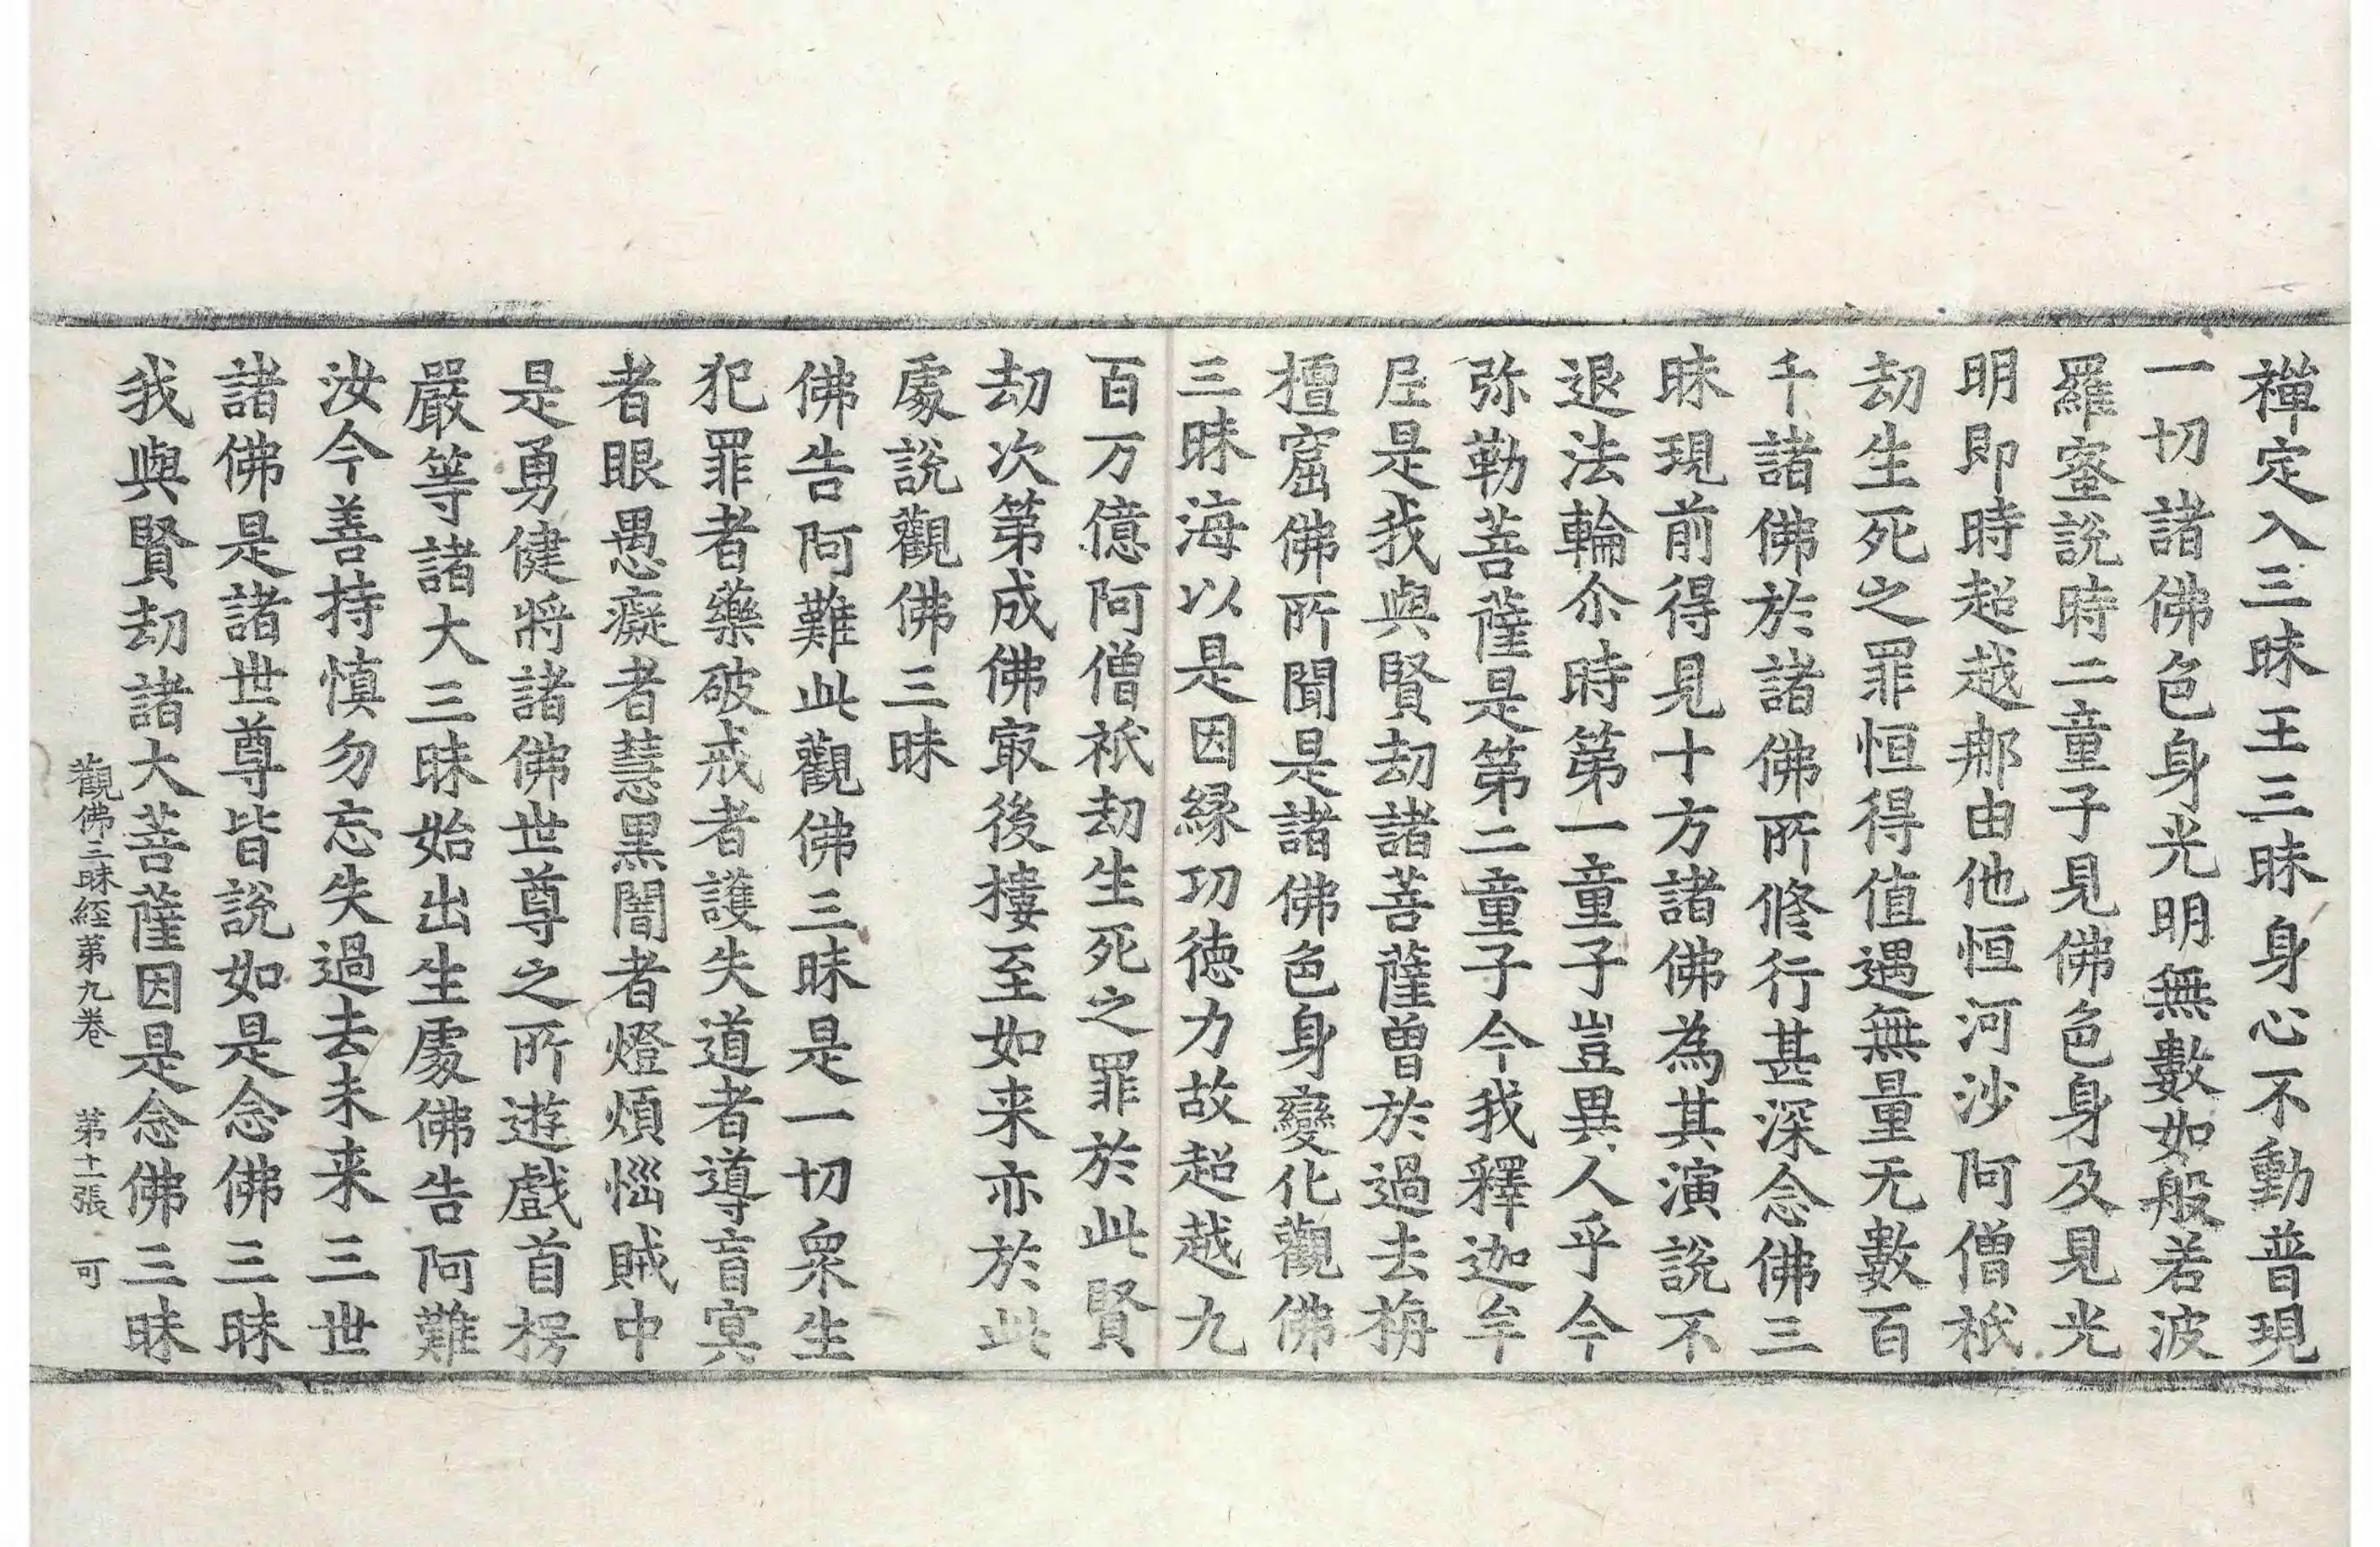 禪定入三昧王三昧身心不動普現
一切諸佛色身光明無數如般若波
羅蜜說時二童子見佛色身及見光
明即時超越那由他恒河沙阿僧祇
劫生死之罪恒得值遇無量无數百
千諸佛於諸佛所修行甚深念佛三
昧現前得見十方諸佛為其演說不
退法輪尒時第一童子豈異人乎今
弥勒菩薩是第二童子今我釋迦牟
尼是我與賢劫諸菩薩曾於過去栴
檀窟佛所聞是諸佛色身變化觀佛
三昧海以是因緣功德力故超越九
百万億阿僧祇劫生死之罪於此賢
劫次第成佛㝡後樓至如来亦於此
處說觀佛三昧
佛告阿難此觀佛三昧是一切衆生
犯罪者藥破戒者護失道者導盲冥
者眼愚癡者慧黑闇者燈煩惱賊中
是勇健將諸佛世尊之所遊戲首楞
嚴等諸大三昧始出生處佛告阿難
汝今善持慎勿忘失過去未来三世
諸佛是諸世尊皆說如是念佛三昧
我與賢劫諸大菩薩因是念佛三昧
觀佛三昧経第九卷 第十二張 可